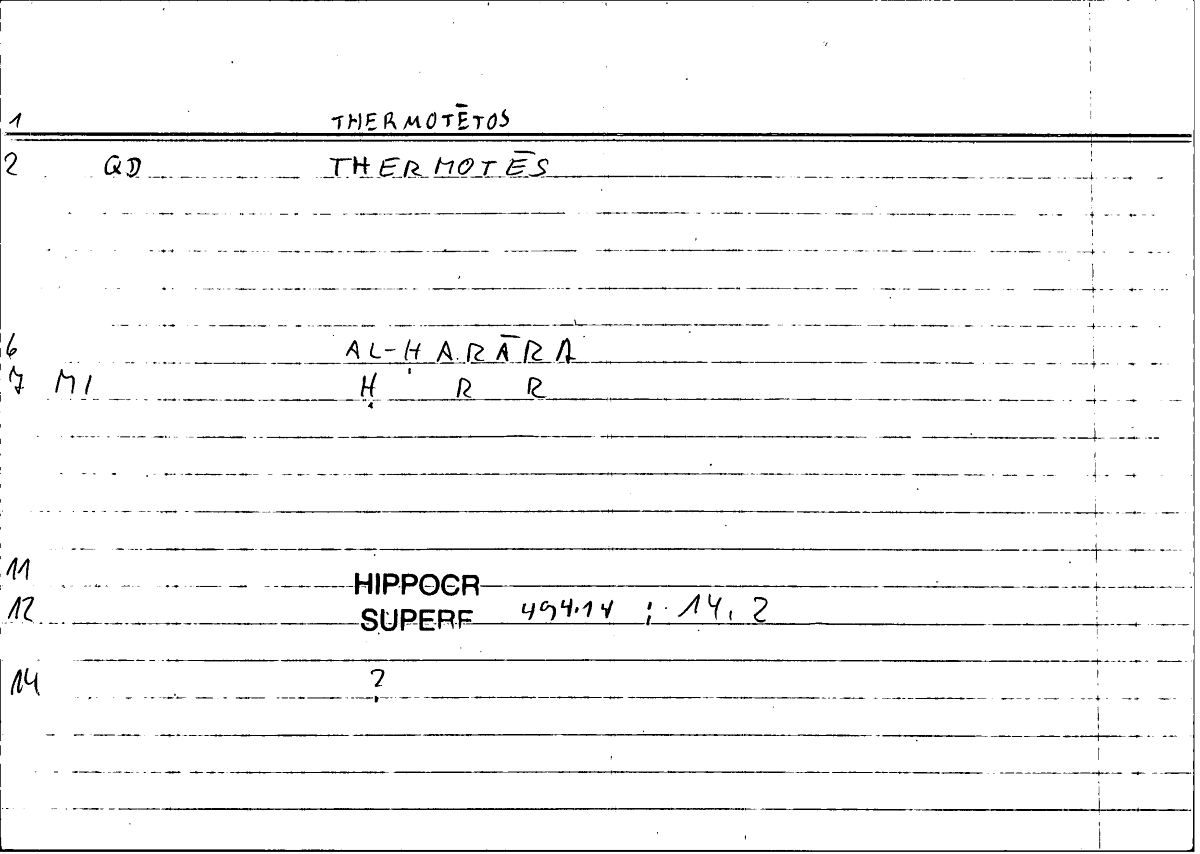 1 THERMOTĒTOS
2 QD THERMOTĒS
6 AL-ḤARĀRA
7 M1 Ḥ R R
11 HIPPOCR
12 SUPERF 494.14 ; 14, 2
14 ?